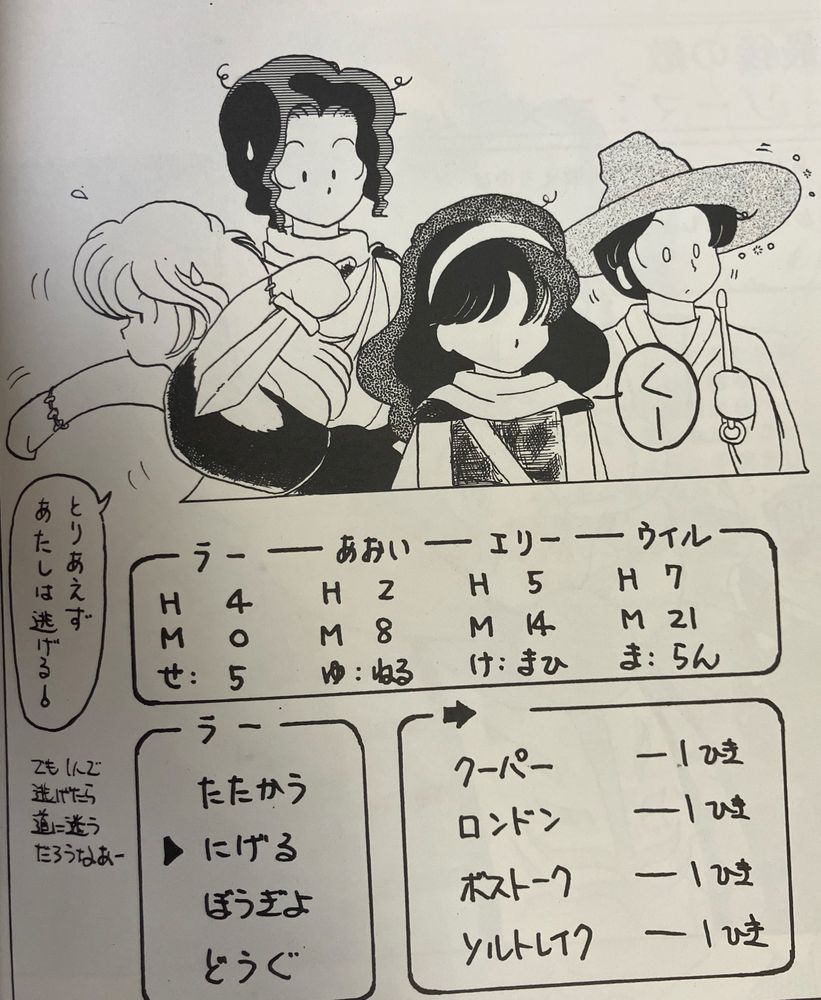 くー
とりあえず
あたしは逃げる!
ラー あおい エリー ウイル
H 4 H 2 H 5 H 7
M 0 M 8 M 14 M 21
せ: 5 ゆ: ねる け: まひ ま: らん
ラー
たたかう
▶ にげる
ぼうぎよ
どうぐ
でも1人で
逃げたら
道に迷う
だろうなあー
➡
クーパー ー1ひき
ロンドン ー1ひき
ボストーク ー1ひき
ソルトレイク ー1ひき